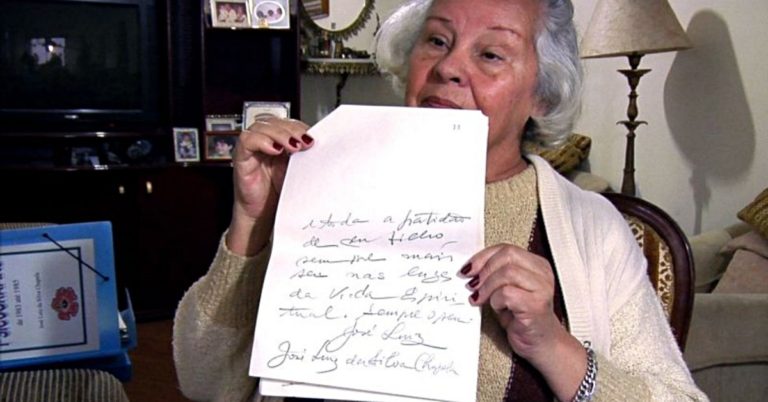 11
e toda a gratidão
de seu filho,
sempre mais
seu nas luzes
da Vida Espiri-
tual. Sempre o seu
José Luiz
José Luiz da Silva Chapela
de 1983 até 1985
José Luiz da Silva Chapela